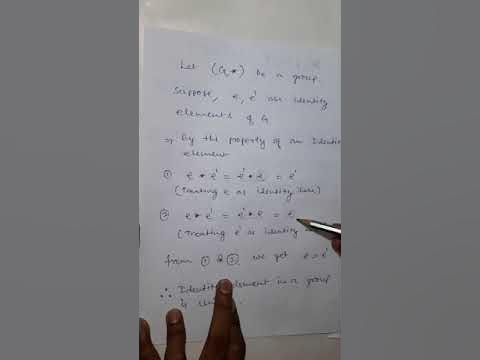 Let (G, *) be a group
Suppose, e, e' are identity
elements of G
⇒ By the property of an Identity
element
① e * e' = e' * e = e'
(Treating e as identity here)
② e * e' = e' * e = e
(Treating e' as identity
from ① & ② we get e = e'
∴ Identity element in a group
is